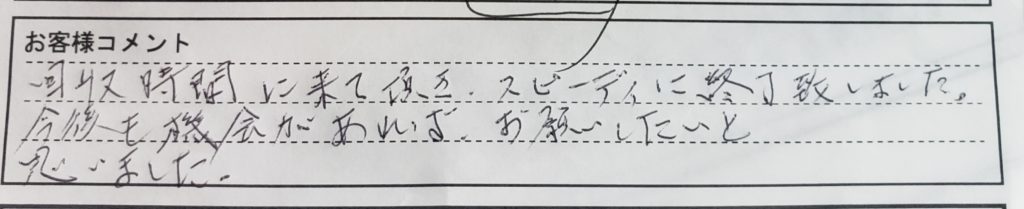 お客様コメント
回収時間に来て頂き、スピーディに終了致しました。
今後も機会があれば、お願いしたいと
思いました。